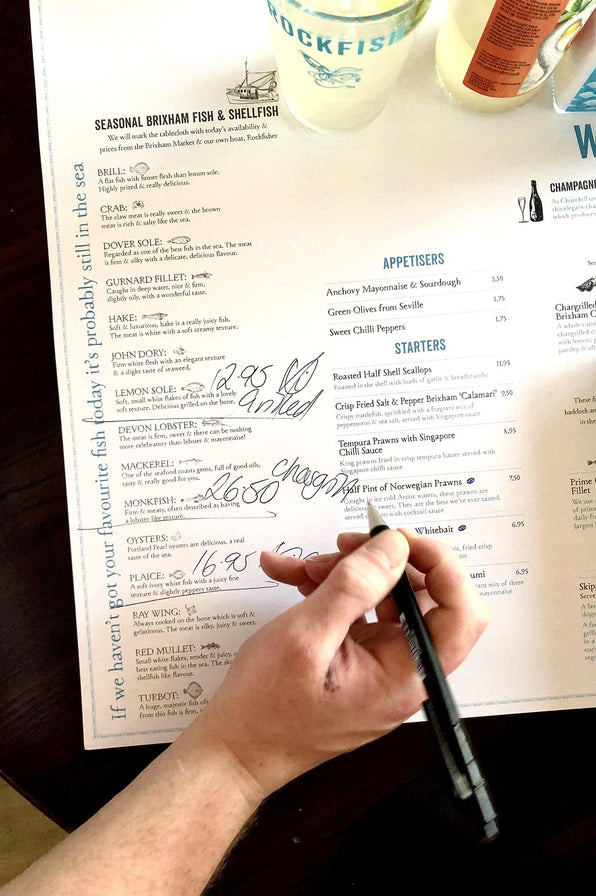 ROCKFISH
SEASONAL BRIXHAM FISH & SHELLFISH
We will mark the tablecloth with today's availability &
prices from the Brixham Market & our own boat, Rockfisher
If we haven't got your favourite fish today it's probably still in the sea
BRILL:
A flat fish with firmer flesh than lemon sole.
Highly prized & really delicious.
CRAB:
The claw meat is really sweet & the brown
meat is rich & salty like the sea.
DOVER SOLE:
Regarded as one of the best fish in the sea. The meat
is firm & silky with a delicate, delicious flavour.
GURNARD FILLET:
Caught in deep water, nice & firm,
slightly oily, with a wonderful taste.
HAKE:
Soft & luxurious, hake is a really juicy fish.
The meat is white with a soft creamy texture.
JOHN DORY:
Firm white flesh with an elegant texture
& a slight taste of seaweed.
LEMON SOLE: 12.95
Soft, small white flakes of fish with a lovely
soft texture. Delicious grilled on the bone. Grilled
DEVON LOBSTER:
The meat is firm, sweet & there can be nothing
more celebratory than lobster & mayonnaise!
MACKEREL:
One of the seafood coasts gems, full of good oils,
tasty & really good for you.
MONKFISH: 26.50
Firm & meaty, often described as having
a lobster-like texture.
OYSTERS:
Portland Pearl oysters are delicious, a real
taste of the sea.
PLAICE: 16.95
A soft ivory white fish with a juicy fine
texture & slightly peppery taste.
RAY WING:
Always cooked on the bone which is soft &
gelatinous. The meat is silky, juicy & sweet.
RED MULLET:
Small white flakes, tender & juicy,
best eating fish in the sea. The
shellfish like flavour.
TURBOT:
A huge, majestic fish
from this fish is firm,
APPETISERS
Anchovy Mayonnaise & Sourdough 3.50
Green Olives from Seville 1.75
Sweet Chilli Peppers 1.75
STARTERS
Roasted Half Shell Scallops 11.95
Roasted in the shell with loads of garlic & breadcrumbs
Crisp Fried Salt & Pepper Brixham 'Calamari' 9.50
Crispy cuttlefish, sprinkled with a fragrant mix of
peppercorns & sea salt, served with Singapore sauce
Tempura Prawns with Singapore
Chilli Sauce 8.95
King prawns fried in crisp tempura batter served with
Singapore chilli sauce
Half Pint of Norwegian Prawns 7.50
Caught in ice cold Arctic waters, these prawns are
deliciously sweet. They are the best we've ever tasted,
served with cocktail sauce
Whitebait 6.95
fried crisp
6.95
mix of three
mayonnaise
W
CHAMPAGNE
As Churchill on
this elegant cha
which produce
Chargrilled
Brixham C
A whole
grilled
with lemon,
These f
haddock and
in the
Prime
Fillet
We use
of prim
Skip